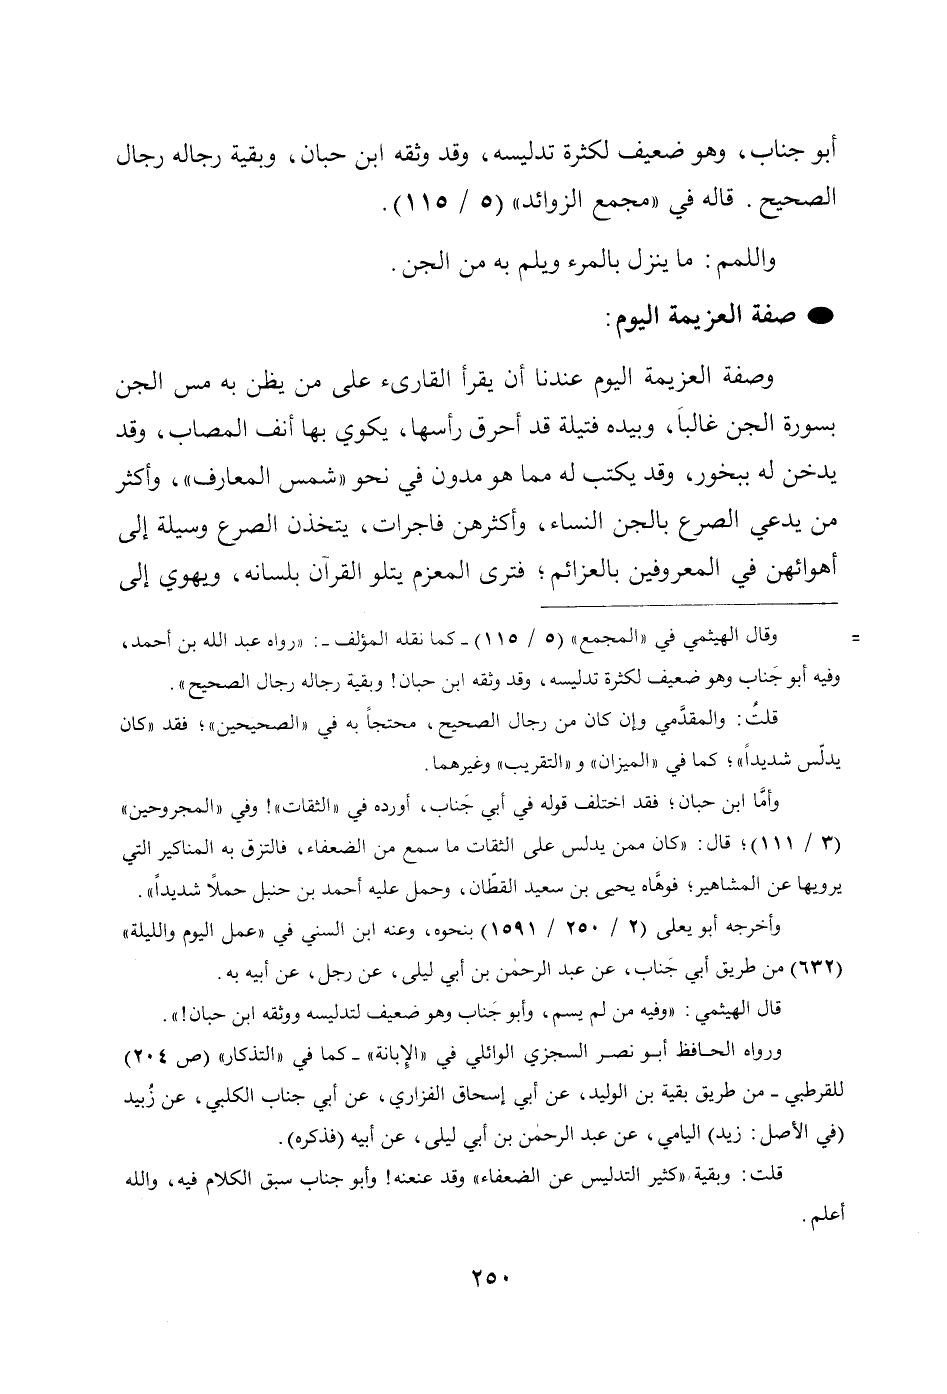 أبو جناب، وهو ضعيف لكثرة تدليسه، وقد وثقه ابن حبان، وبقية رجاله رجال
الصحيح. قاله في «مجمع الزوائد» (٥ / ١١٥).
واللمم: ما ينزل بالمرء ويلم به من الجن.
● صفة العزيمة اليوم:
وصفة العزيمة اليوم عندنا أن يقرأ القارىء على من يظن به مس الجن
بسورة الجن غالباً، وبيده فتيلة قد أحرق رأسها، يكوي بها أنف المصاب، وقد
يدخن له ببخور، وقد يكتب له مما هو مدون في نحو «شمس المعارف»، وأكثر
من يدعي الصرع بالجن النساء، وأكثرهن فاجرات، يتخذن الصرع وسيلة إلى
أهوائهن في المعروفين بالعزائم؛ فترى المعزم يتلو القرآن بلسانه، ويهوي إلى
= وقال الهيثمي في «المجمع» (٥ / ١١٥) ـ كما نقله المؤلف ـ: «رواه عبد الله بن أحمد،
وفيه أبو جَناب وهو ضعيف لكثرة تدليسه، وقد وثقه ابن حبان! وبقية رجاله رجال الصحيح».
قلتُ: والمقدَّمي وإن كان من رجال الصحيح، محتجاً به في «الصحيحين»؛ فقد «كان
يدلّس شديداً»؛ كما في «الميزان» و «التقريب» وغيرهما.
وأمَّا ابن حبان؛ فقد اختلف قوله في أبي جَناب، أورده في «الثقات»! وفي «المجروحين»
(٣ / ١١١)؛ قال: «كان ممن يدلس على الثقات ما سمع من الضعفاء، فالتزق به المناكير التي
يرويها عن المشاهير؛ فوهَّاه يحيى بن سعيد القطّان، وحمل عليه أحمد بن حنبل حملاً شديداً».
وأخرجه أبو يعلى (٢ / ٢٥٠ / ١٥٩١) بنحوه، وعنه ابن السني في «عمل اليوم والليلة»
(٦٣٢) من طريق أبي جَناب، عن عبد الرحمٰن بن أبي ليلى، عن رجل، عن أبيه به.
قال الهيثمي: «وفيه من لم يسم، وأبو جَناب وهو ضعيف لتدليسه ووثقه ابن حبان!».
ورواه الحافظ أبو نصر السجزي الوائلي في «الإِبانة» ـ كما في «التذكار» (ص ٢٠٤)
للقرطبي ـ من طريق بقية بن الوليد، عن أبي إسحاق الفزاري، عن أبي جناب الكلبي، عن زُبيد
(في الأصل: زيد) اليامي، عن عبد الرحمٰن بن أبي ليلى، عن أبيه (فذكره).
قلت: وبقية «كثير التدليس عن الضعفاء» وقد عنعنه! وأبو جناب سبق الكلام فيه، والله
أعلم.
٢٥٠